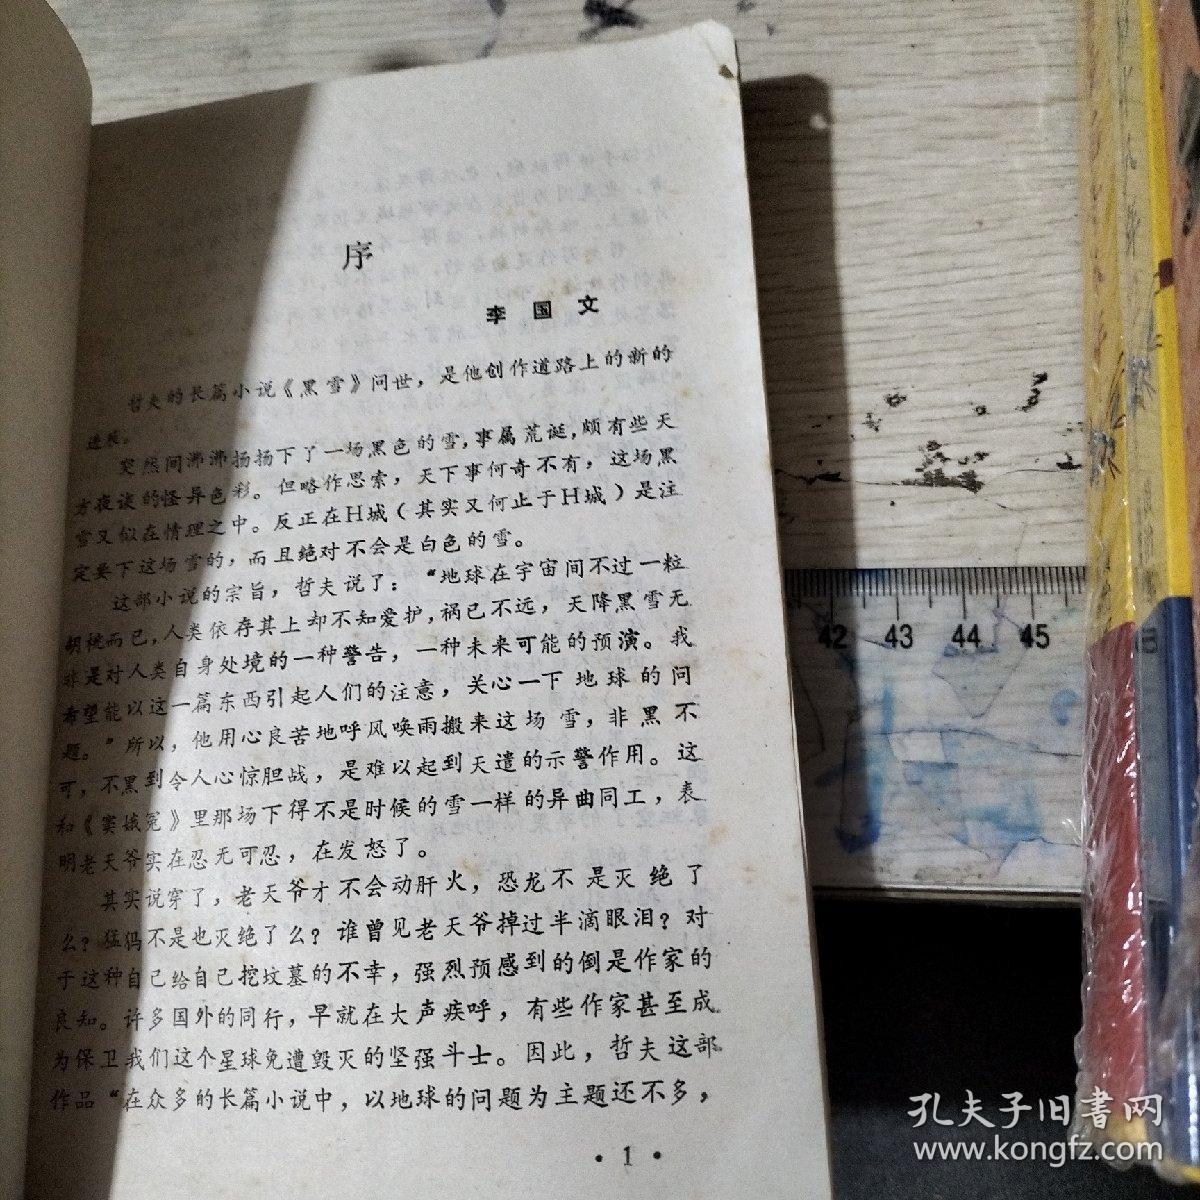 序
李国文
哲夫的长篇小说《黑雪》问世，是他创作道路上的新的
进展。
突然间沸沸扬扬下了一场黑色的雪，事属荒诞，颇有些天
方夜谈的怪异色彩。但略作思索，天下事何奇不有，这场黑
雪又似在情理之中。反正在H城（其实又何止于H城）是注
定要下这场雪的，而且绝对不会是白色的雪。
这部小说的宗旨，哲夫说了：“地球在宇宙间不过一粒
胡桃而已，人类依存其上却不知爱护，祸已不远，天降黑雪无
非是对人类自身处境的一种警告，一种未来可能的预演。我
希望能以这一篇东西引起人们的注意，关心一下地球的问
题。”所以，他用心良苦地呼风唤雨搬来这场雪，非黑不
可，不黑到令人心惊胆战，是难以起到天遣的示警作用。这
和《窦娥冤》里那场下得不是时候的雪一样的异曲同工，表
明老天爷实在忍无可忍，在发怒了。
其实说穿了，老天爷才不会动肝火，恐龙不是灭绝了
么？猛犸不是也灭绝了么？谁曾见老天爷掉过半滴眼泪？对
于这种自己给自己挖坟墓的不幸，强烈预感到的倒是作家的
良知。许多国外的同行，早就在大声疾呼，有些作家甚至成
为保卫我们这个星球免遭毁灭的坚强斗士。因此，哲夫这部
作品“在众多的长篇小说中，以地球的问题为主题还不多，
• 1 •
42 43 44 45
孔夫子旧书网
www.kongfz.com